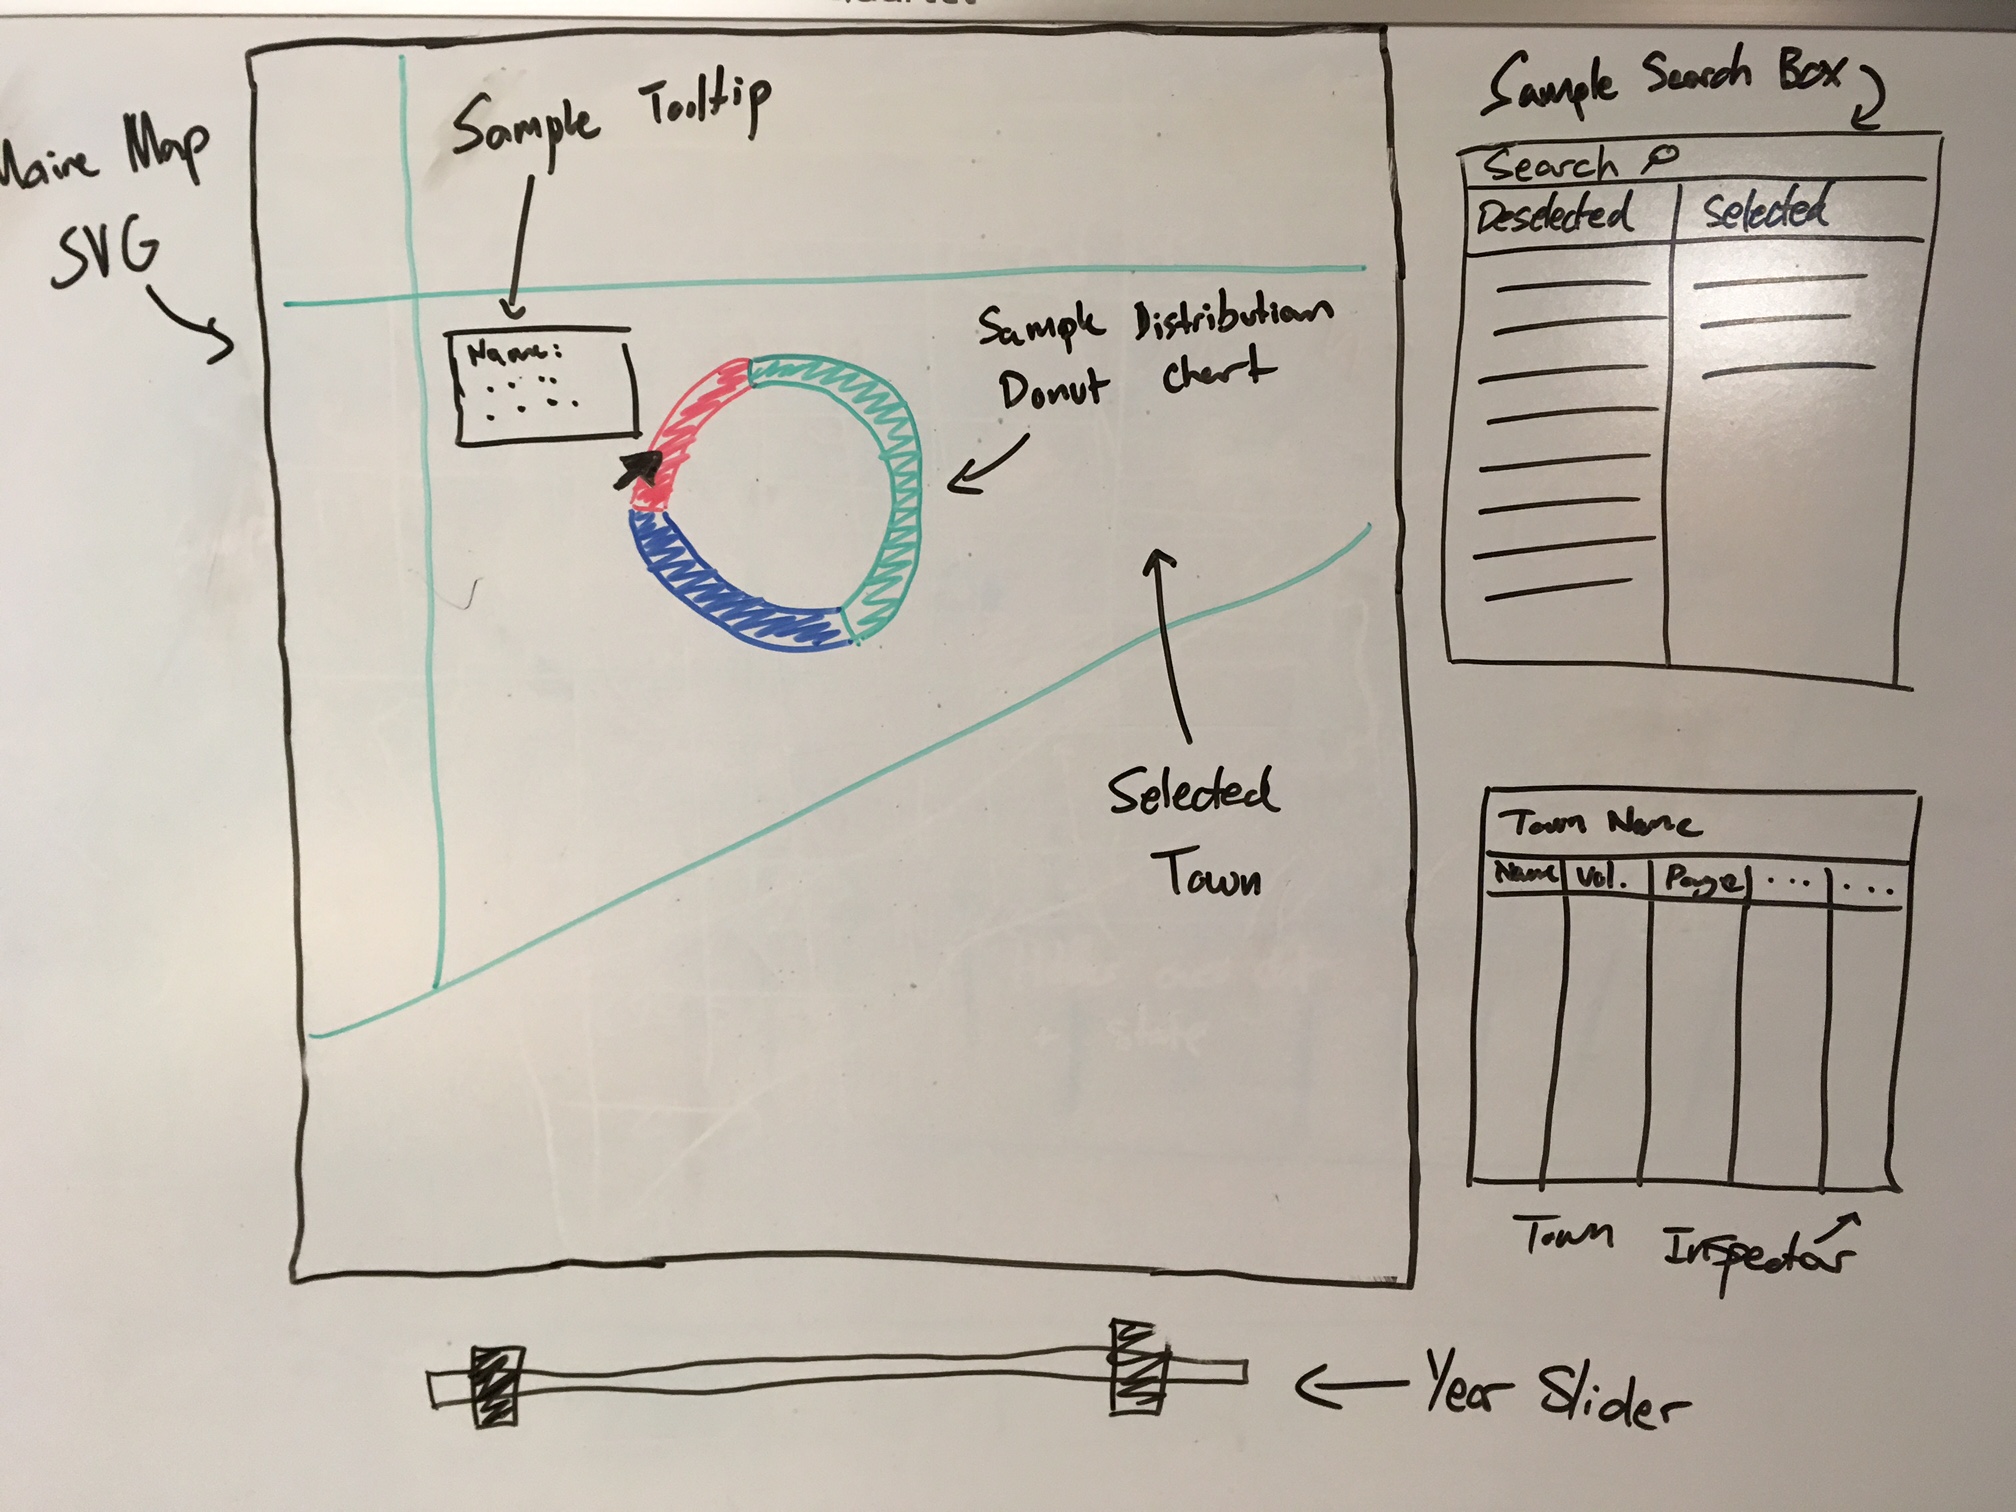 Maine Map
SVG
Sample Tooltip
Name:
Sample Distribution
Donut Chart
Selected
Town
Sample Search Box
Search
Deselected Selected
Town Name
Name Vol. Page ... ...
Town Inspector
Year Slider